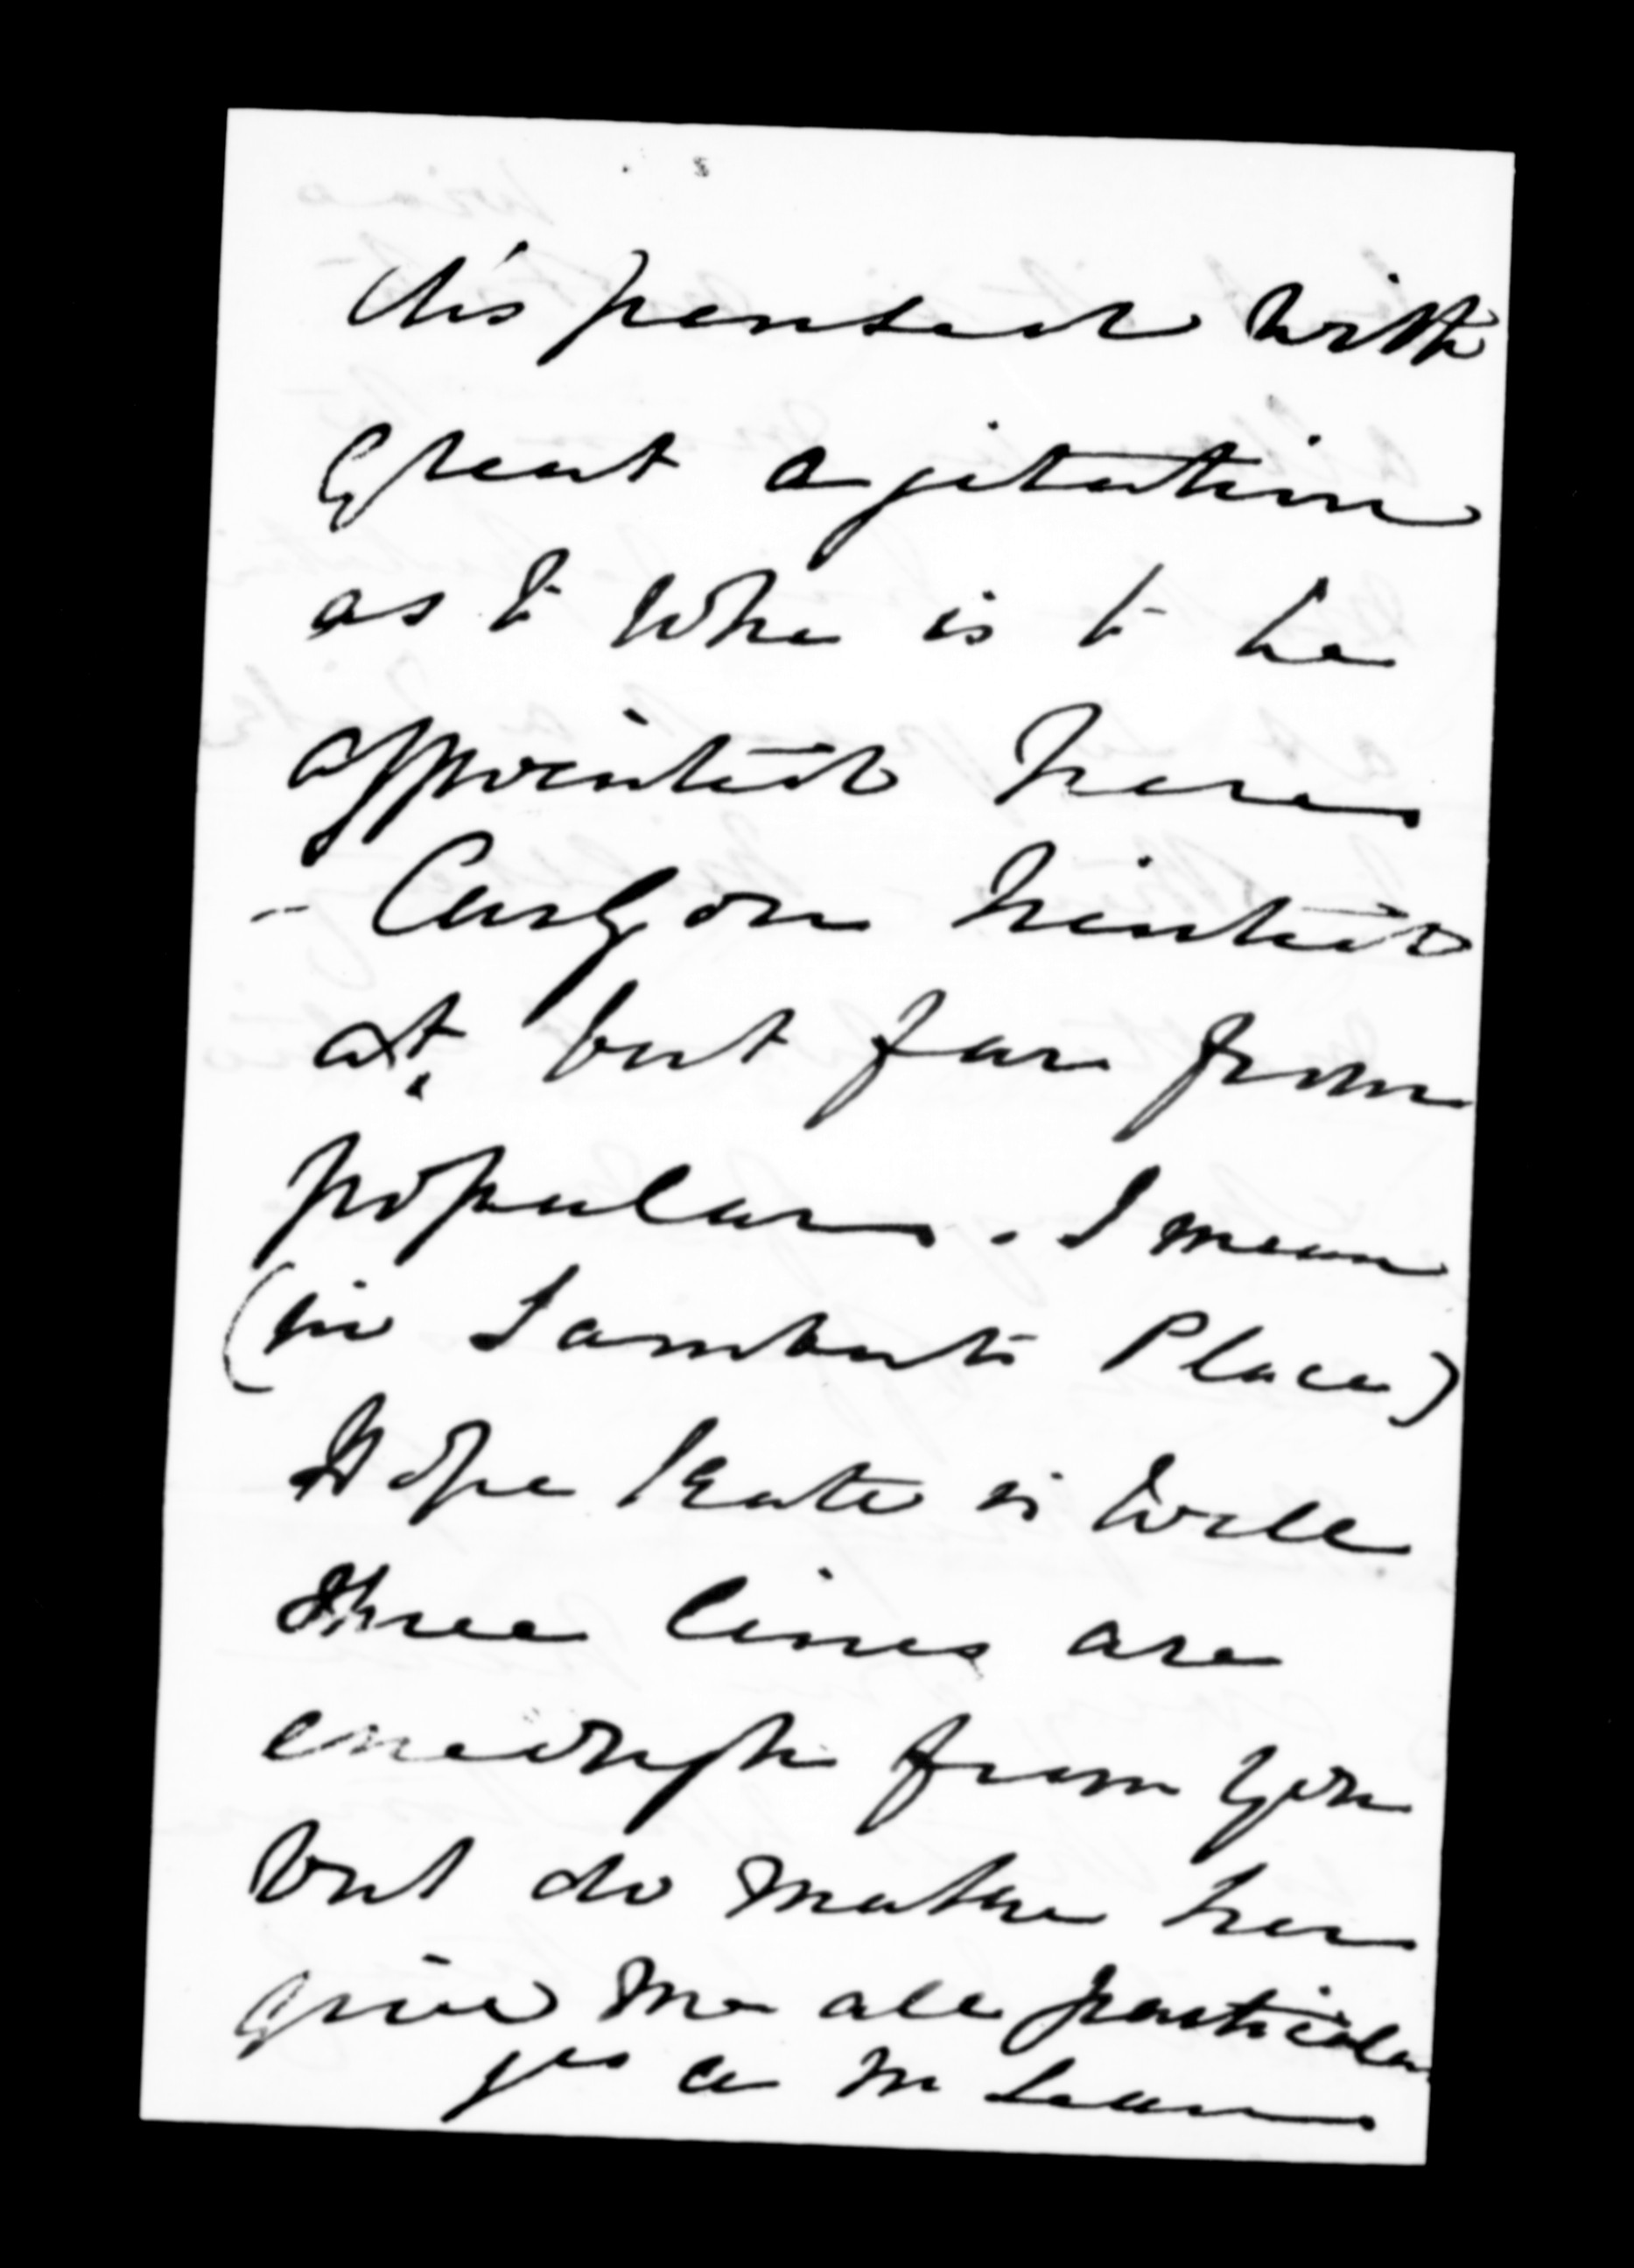 dispensed with
Great agitation
as to who is to be
appointed here
- Carlyon hinted
at. but far from
popular. I mean
(in Lamberts Place)
Hope Kate is well
three lines are
enough from you
but do make her
give me all particular
yrs a McLean